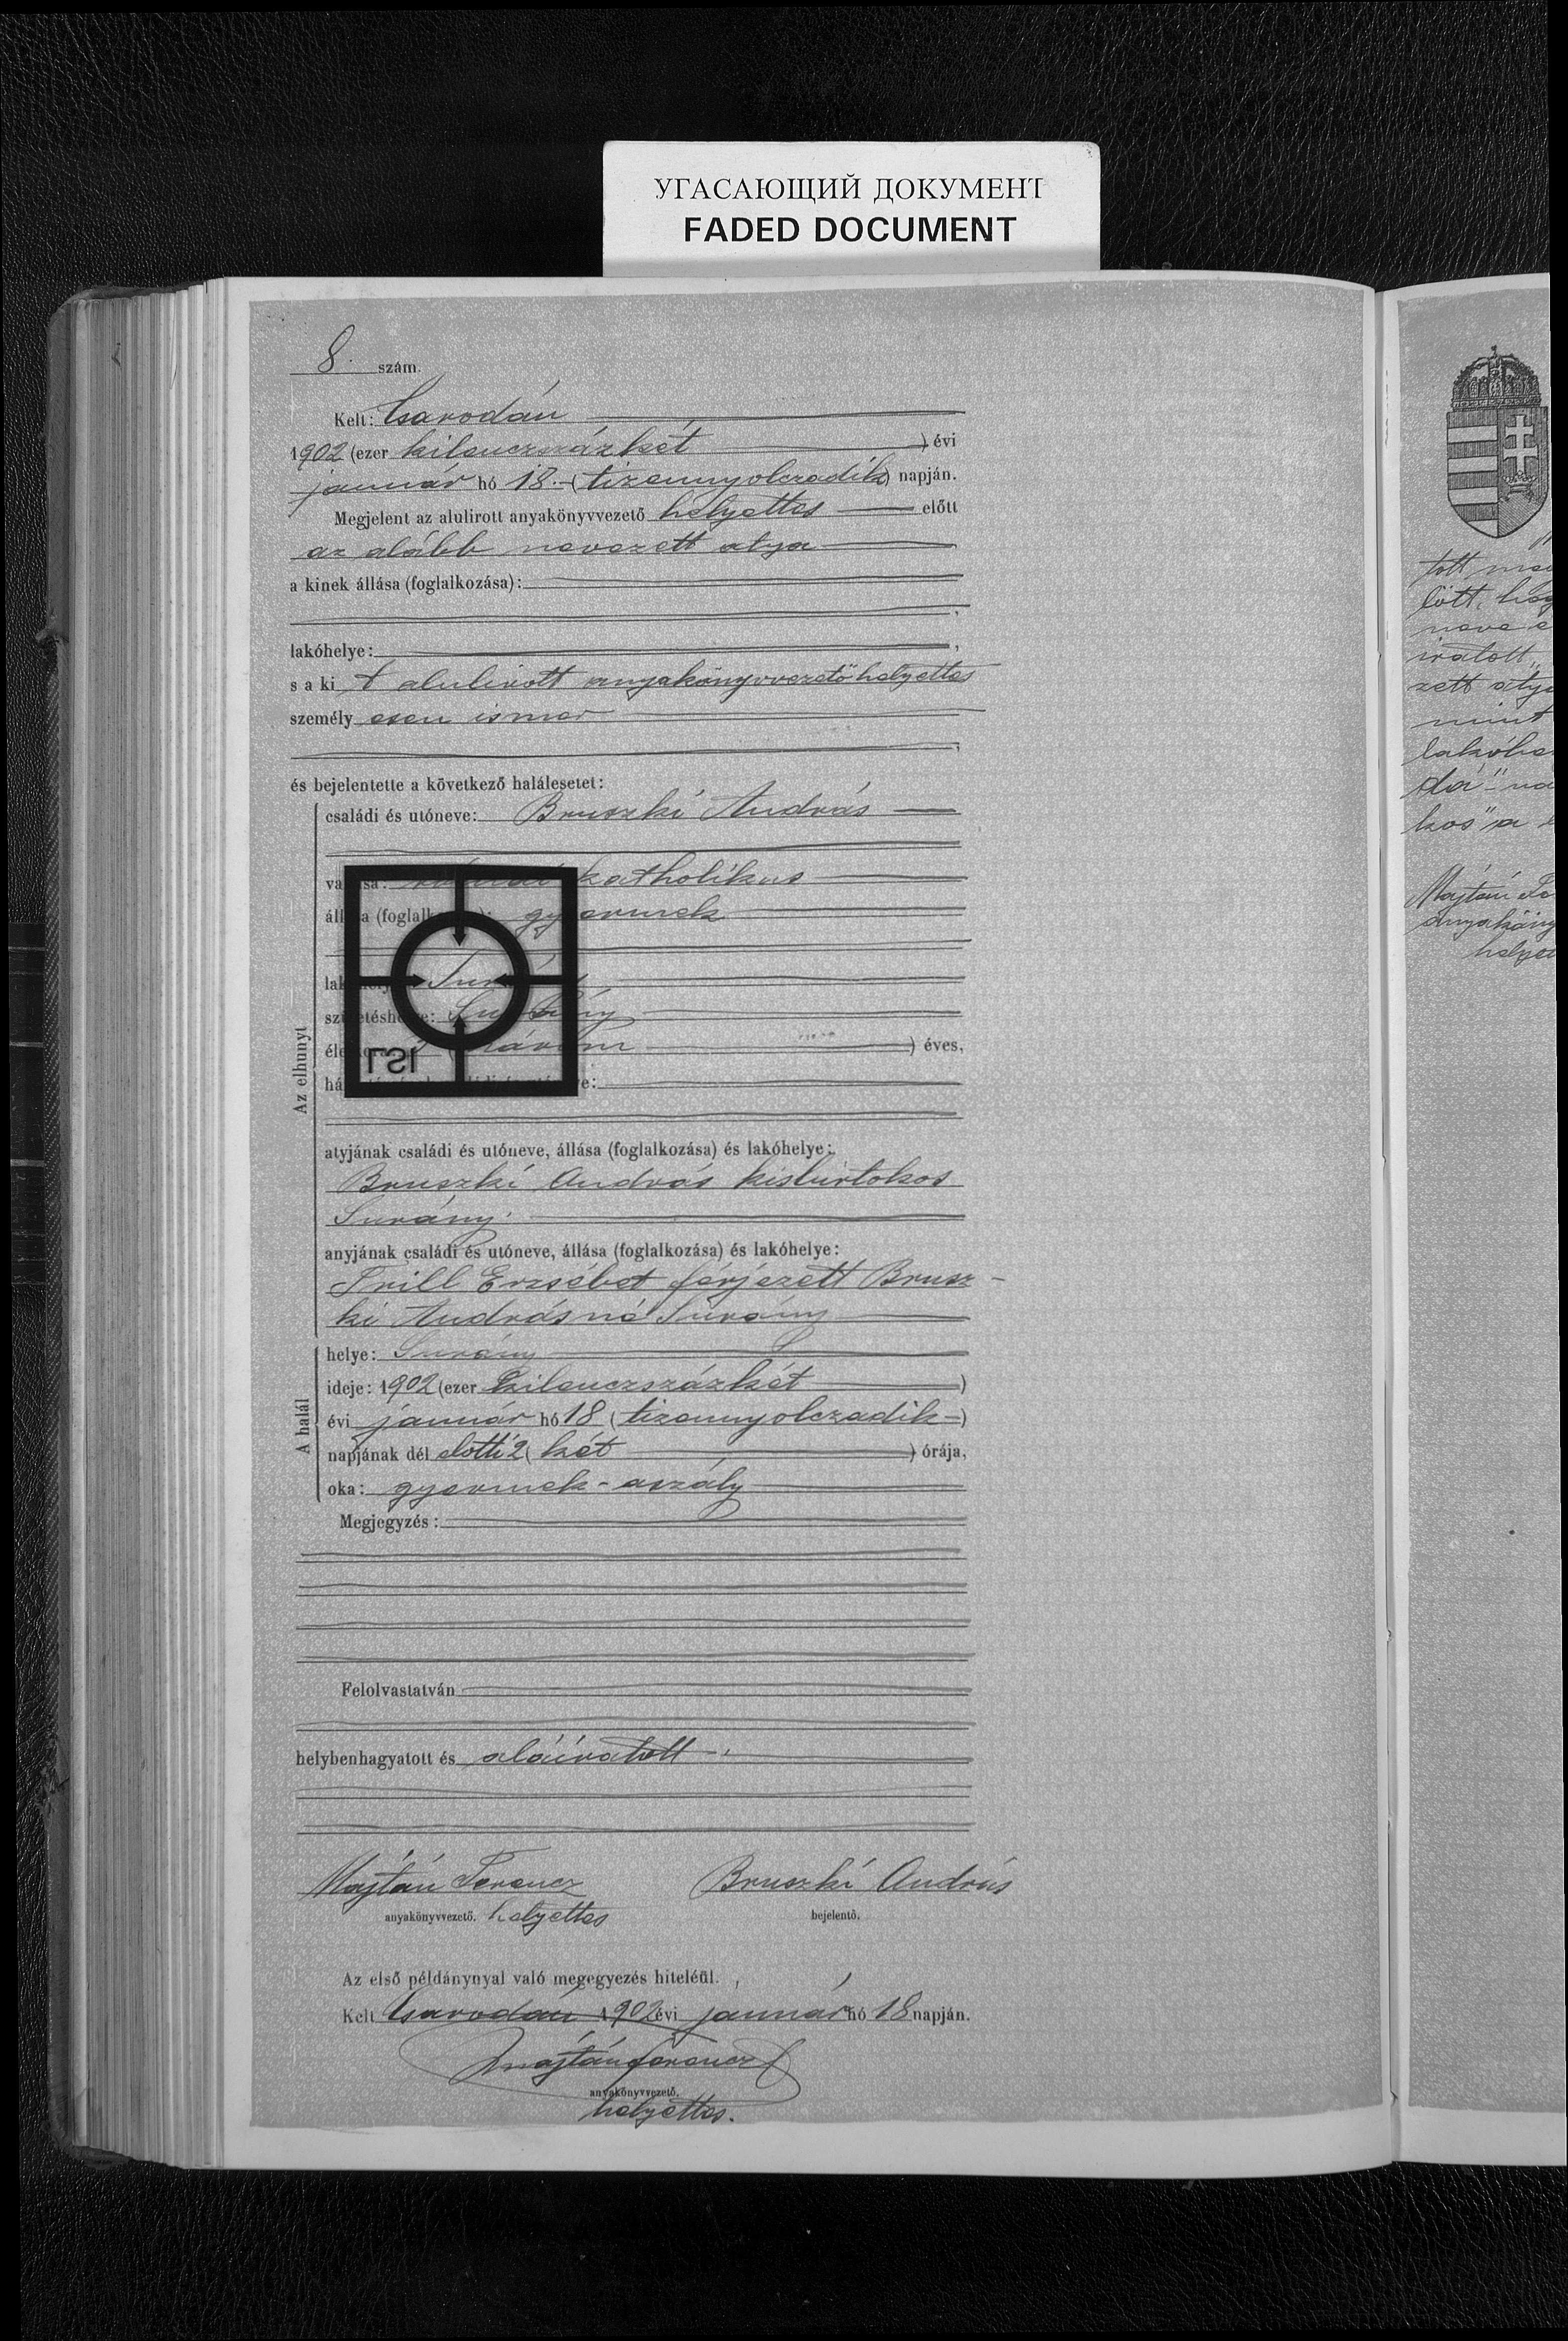 УГАСАЮЩИЙ ДОКУМЕНТ
FADED DOCUMENT
8. szám.
Kelt: Csarodán
1902 (ezer kilenczszázkét ) évi
január hó 18. (tizennyolczadik) napján.
Megjelent az alulirott anyakönyvvezető helyettes előtt
az alább nevezett atya
a kinek állása (foglalkozása):
lakóhelye:
s a ki t alulirott anyakönyvvezető helyettes
személy esen ismer
és bejelentette a következő halálesetet:
Az elhunyt
családi és utóneve: Bruszki András
katholikus
gyermek
LSI
) éves,
atyjának családi és utóneve, állása (foglalkozása) és lakóhelye:
Bruszki András kisbirtokos
Surány
anyjának családi és utóneve, állása (foglalkozása) és lakóhelye:
Trill Erzsébet férjezett Brusz-
ki Andrásné Surány
A halál
helye: Surány
ideje: 1902 (ezer kilenczszázkét )
évi január hó 18 (tizennyolczadik)
napjának dél előtti 2 (két ) órája,
oka: gyermek-aszály
Megjegyzés:
Felolvastatván
helybenhagyatott és aláíratott.
Majtán Ferencz Bruszki András
anyakönyvvezető. helyettes bejelentő.
Az első példánynyal való megegyezés hiteléül.
Kelt Csarodán 1902 évi január hó 18 napján.
Majtán Ferencz
anyakönyvvezető.
helyettes.